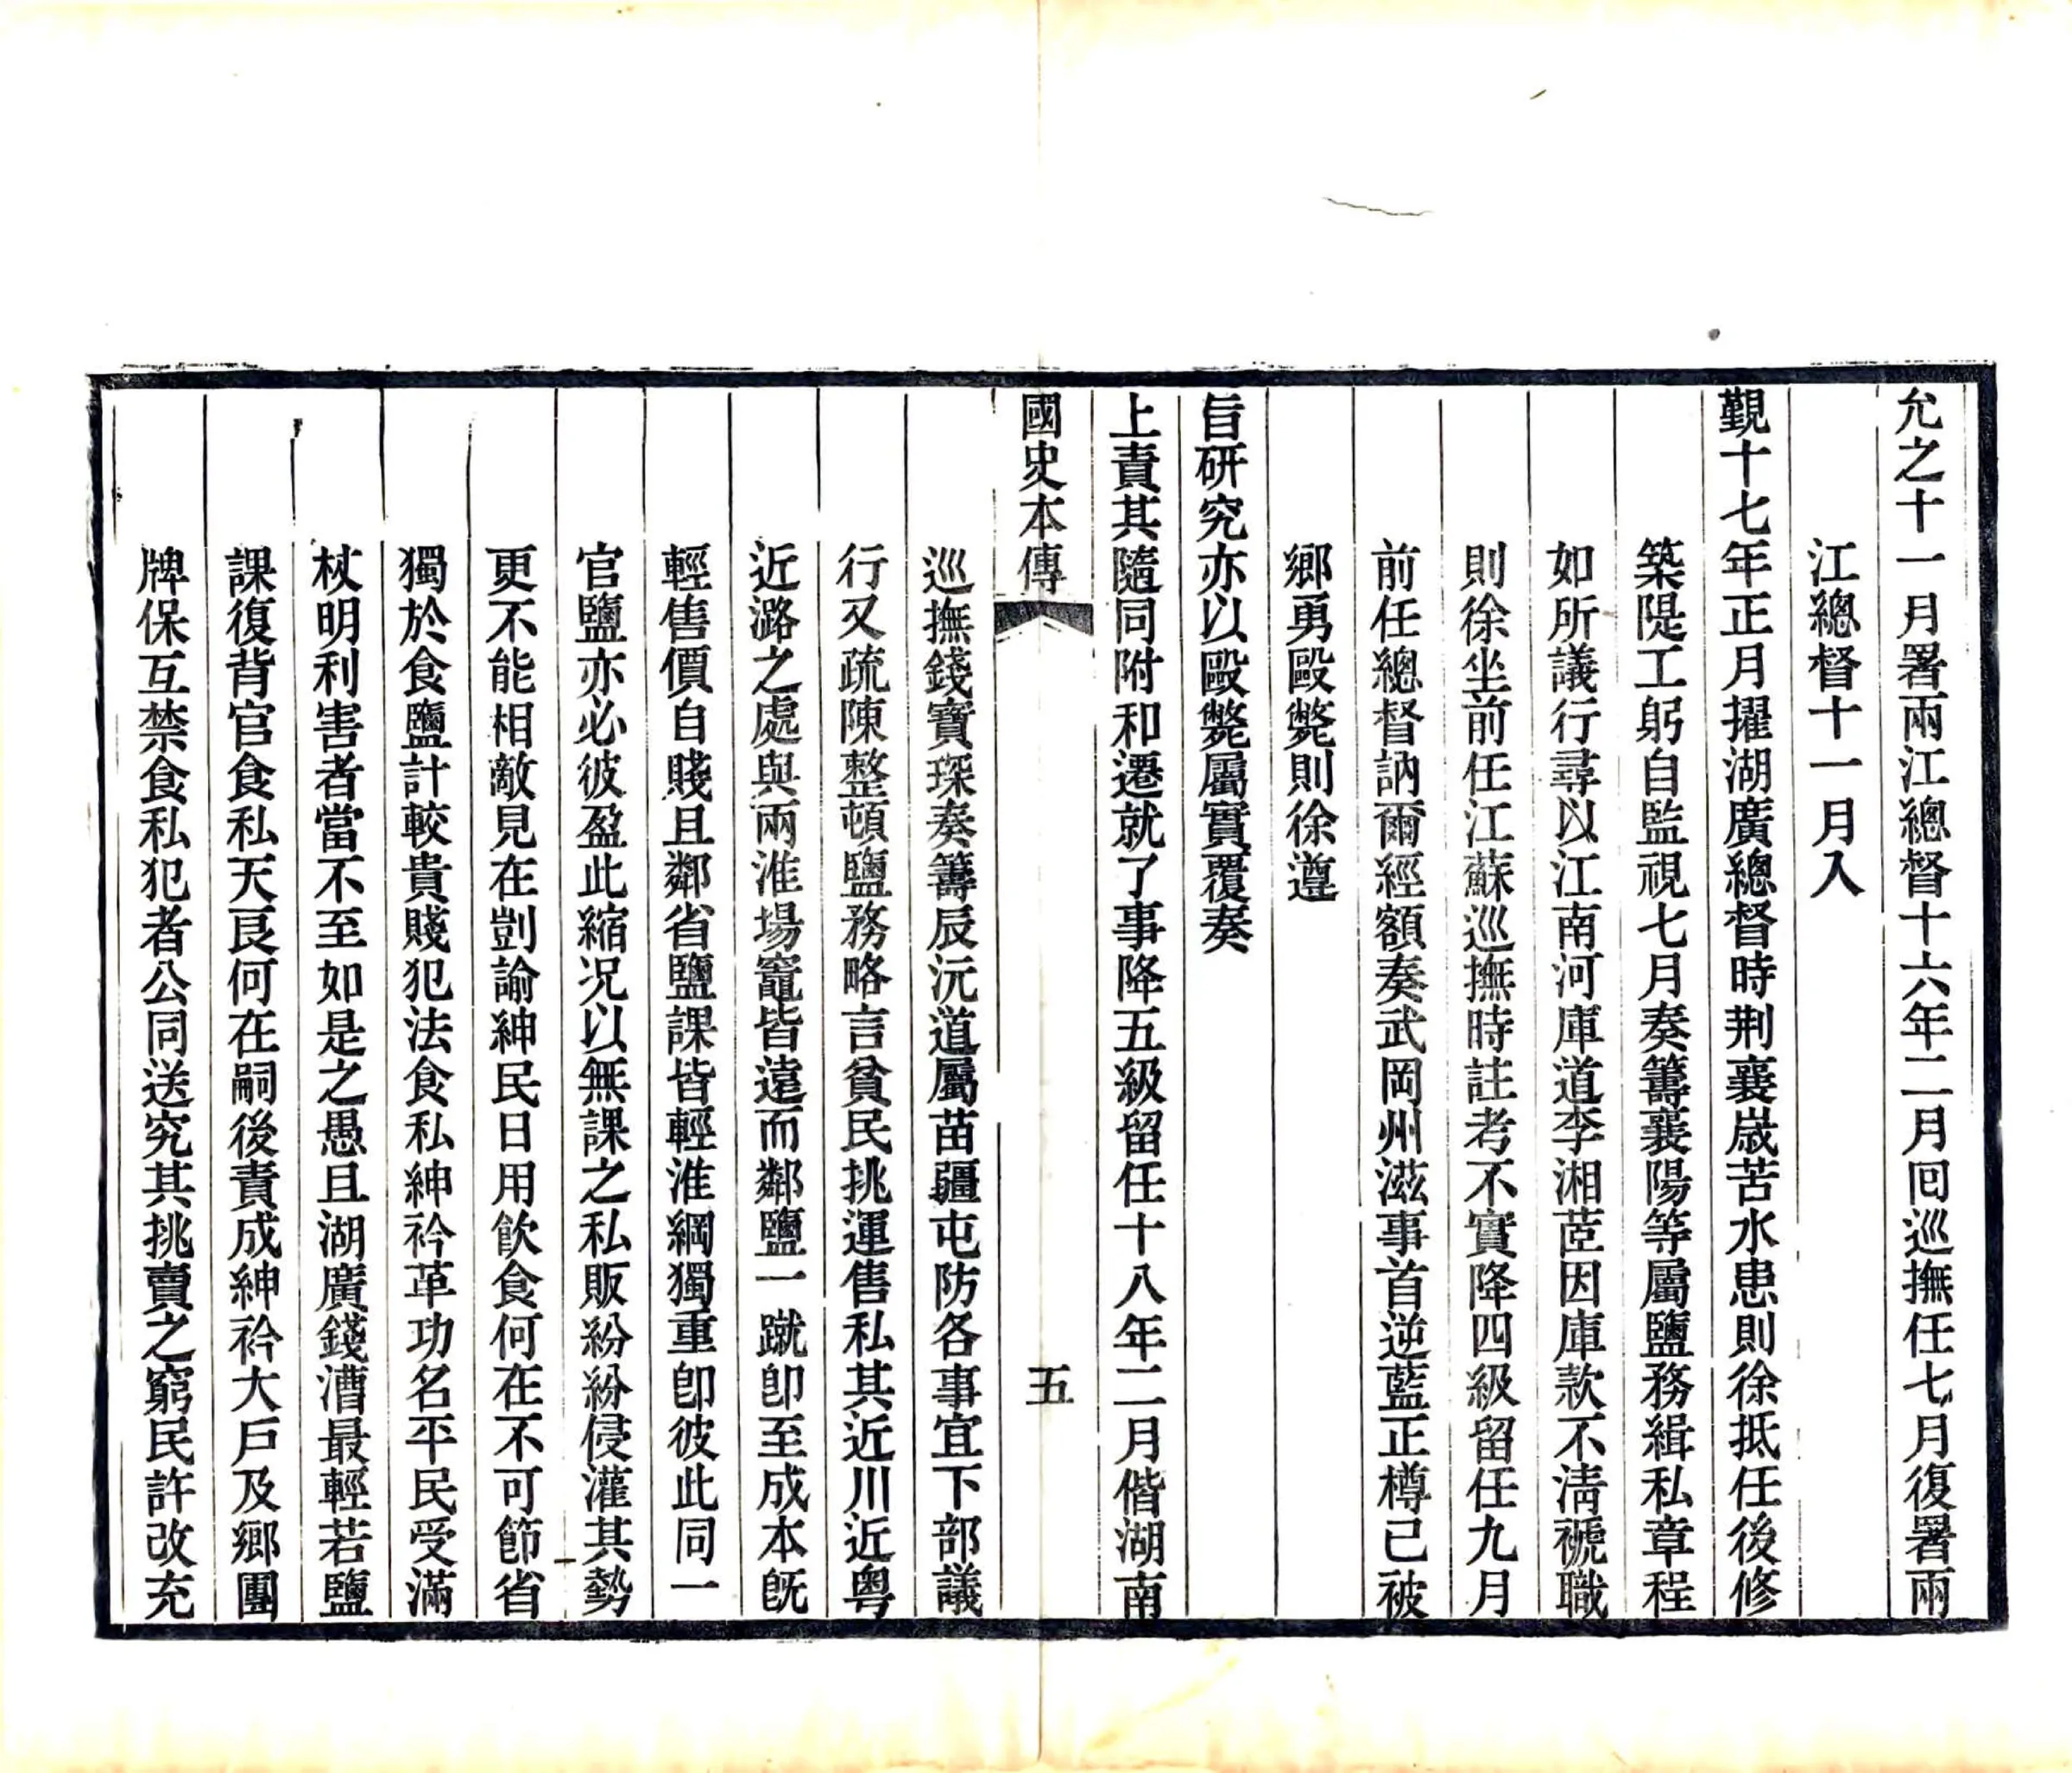 允之十一月署兩江總督十六年二月回巡撫任七月復署兩
江總督十一月入
覲十七年正月擢湖廣總督時荆襄歲苦水患則徐抵任後修
築隄工躬自監視七月奏籌襄陽等屬鹽務緝私章程
如所議行尋以江南河庫道李湘茝因庫款不淸褫職
則徐坐前任江蘇巡撫時註考不實降四級留任九月
前任總督訥爾經額奏武岡州滋事首逆藍正樽已被
鄉勇毆斃則徐遵
旨研究亦以毆斃屬實覆奏
上責其隨同附和遷就了事降五級留任十八年二月偕湖南
國史本傳
五
巡撫錢寶琛奏籌辰沅道屬苗疆屯防各事宜下部議
行又疏陳整頓鹽務略言貧民挑運售私其近川近粤
近潞之處與兩淮場竈皆遠而鄰鹽一蹴卽至成本旣
輕售價自賤且鄰省鹽課皆輕淮綱獨重卽彼此同一
官鹽亦必彼盈此縮況以無課之私販紛紛侵灌其勢
更不能相敵見在剴諭紳民日用飮食何在不可節省
獨於食鹽計較貴賤犯法食私紳衿革功名平民受滿
杖明利害者當不至如是之愚且湖廣錢漕最輕若鹽
課復背官食私天良何在嗣後責成紳衿大戶及鄉團
牌保互禁食私犯者公同送究其挑賣之窮民許改充